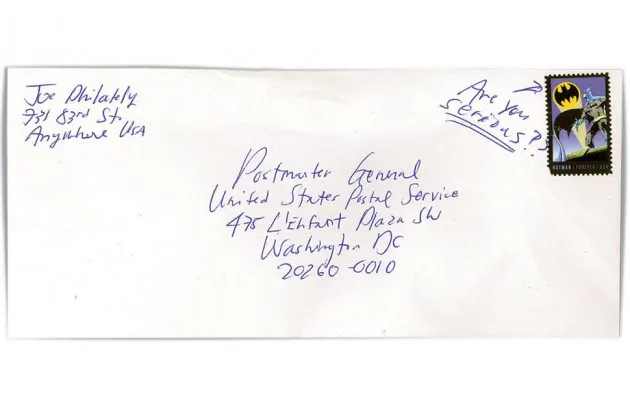 Joe Philately
731 83rd St.
Anywhere USA
Are you
serious?!
Postmaster General
United States Postal Service
475 L'Enfant Plaza SW
Washington DC
20260-0010
BATMAN FOREVER USA